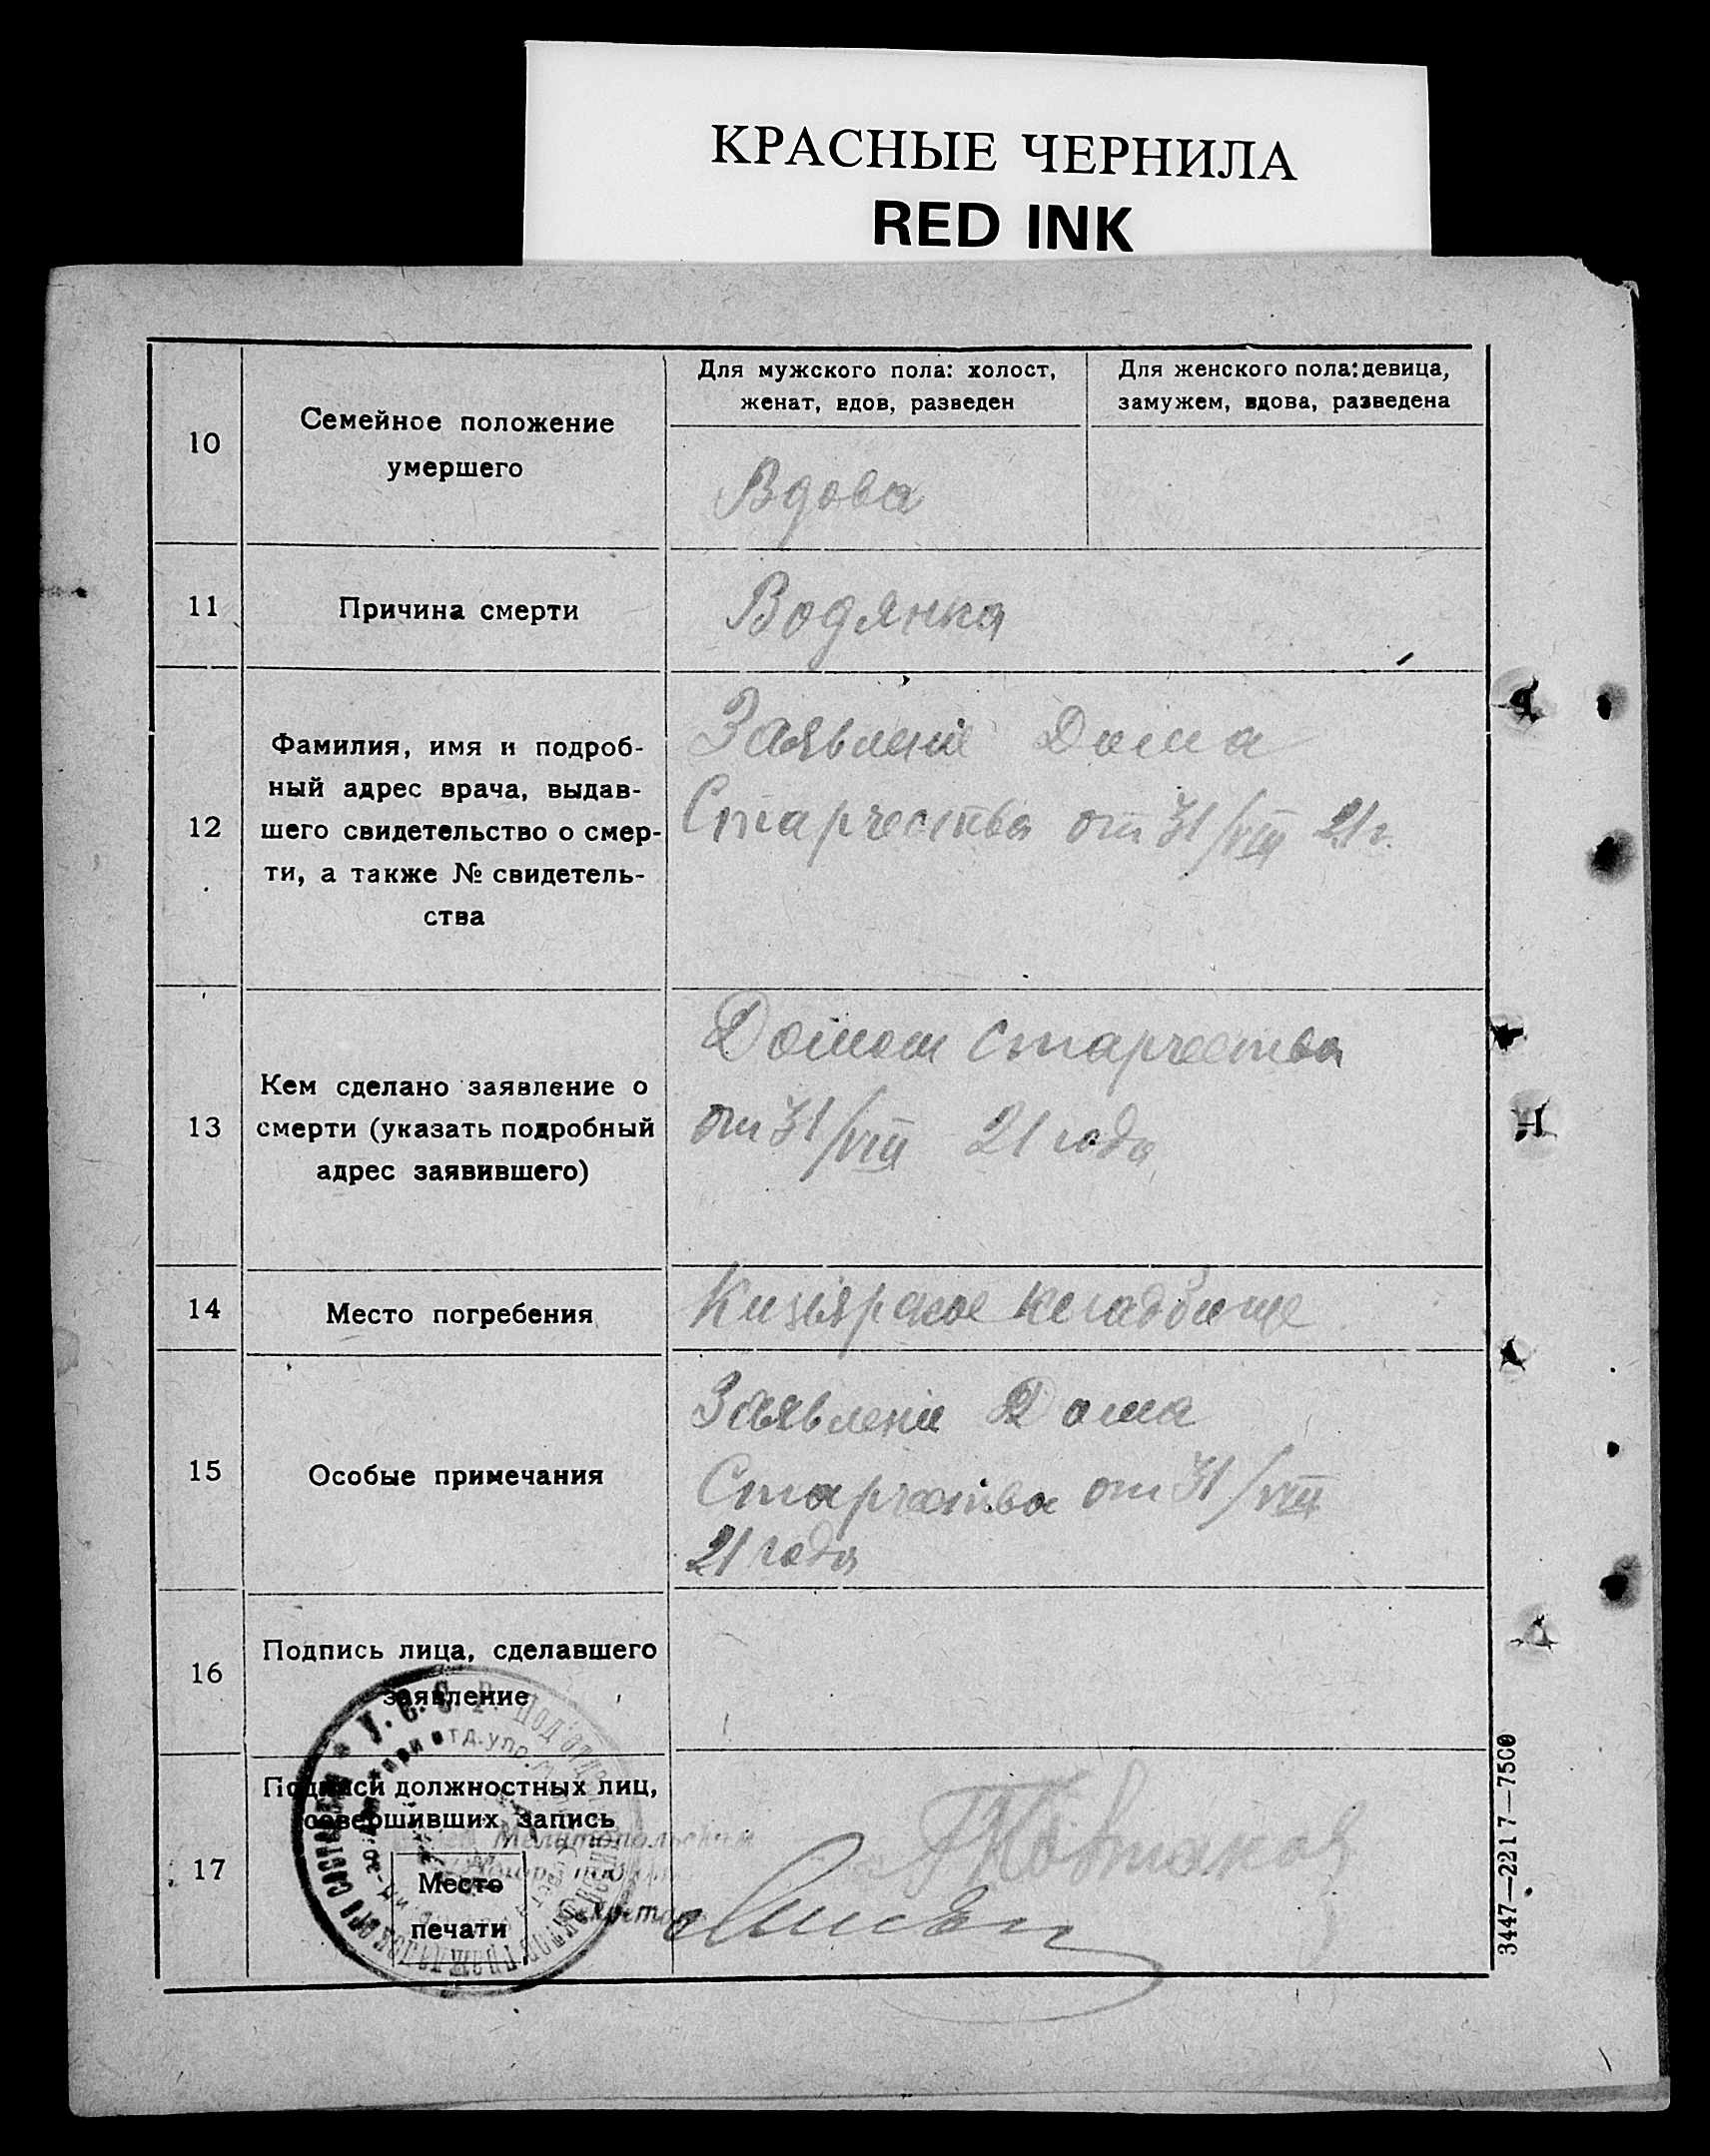 КРАСНЫЕ ЧЕРНИЛА
RED INK
10
Семейное положение
умершего
Для мужского пола: холост,
женат, вдов, разведен
Для женского пола: девица,
замужем, вдова, разведена
Вдова
11
Причина смерти
Водянка
12
Фамилия, имя и подроб-
ный адрес врача, выдав-
шего свидетельство о смер-
ти, а также № свидетель-
ства
Заявленіе Дома
Старчества от 31/VIII 21 г.
13
Кем сделано заявление о
смерти (указать подробный
адрес заявившего)
Домом старчества
от 31/VIII 21 года
14
Место погребения
Кизіярское кладбище
15
Особые примечания
Заявленіе Дома
Старчества от 31/VIII
21 года
16
Подпись лица, сделавшего
заявление
17
Подписи должностных лиц,
совершивших запись
Место
печати
У. С. С. Р. Под'отдел
при отд. упр.
Мелитопольским
3447—2217—7500